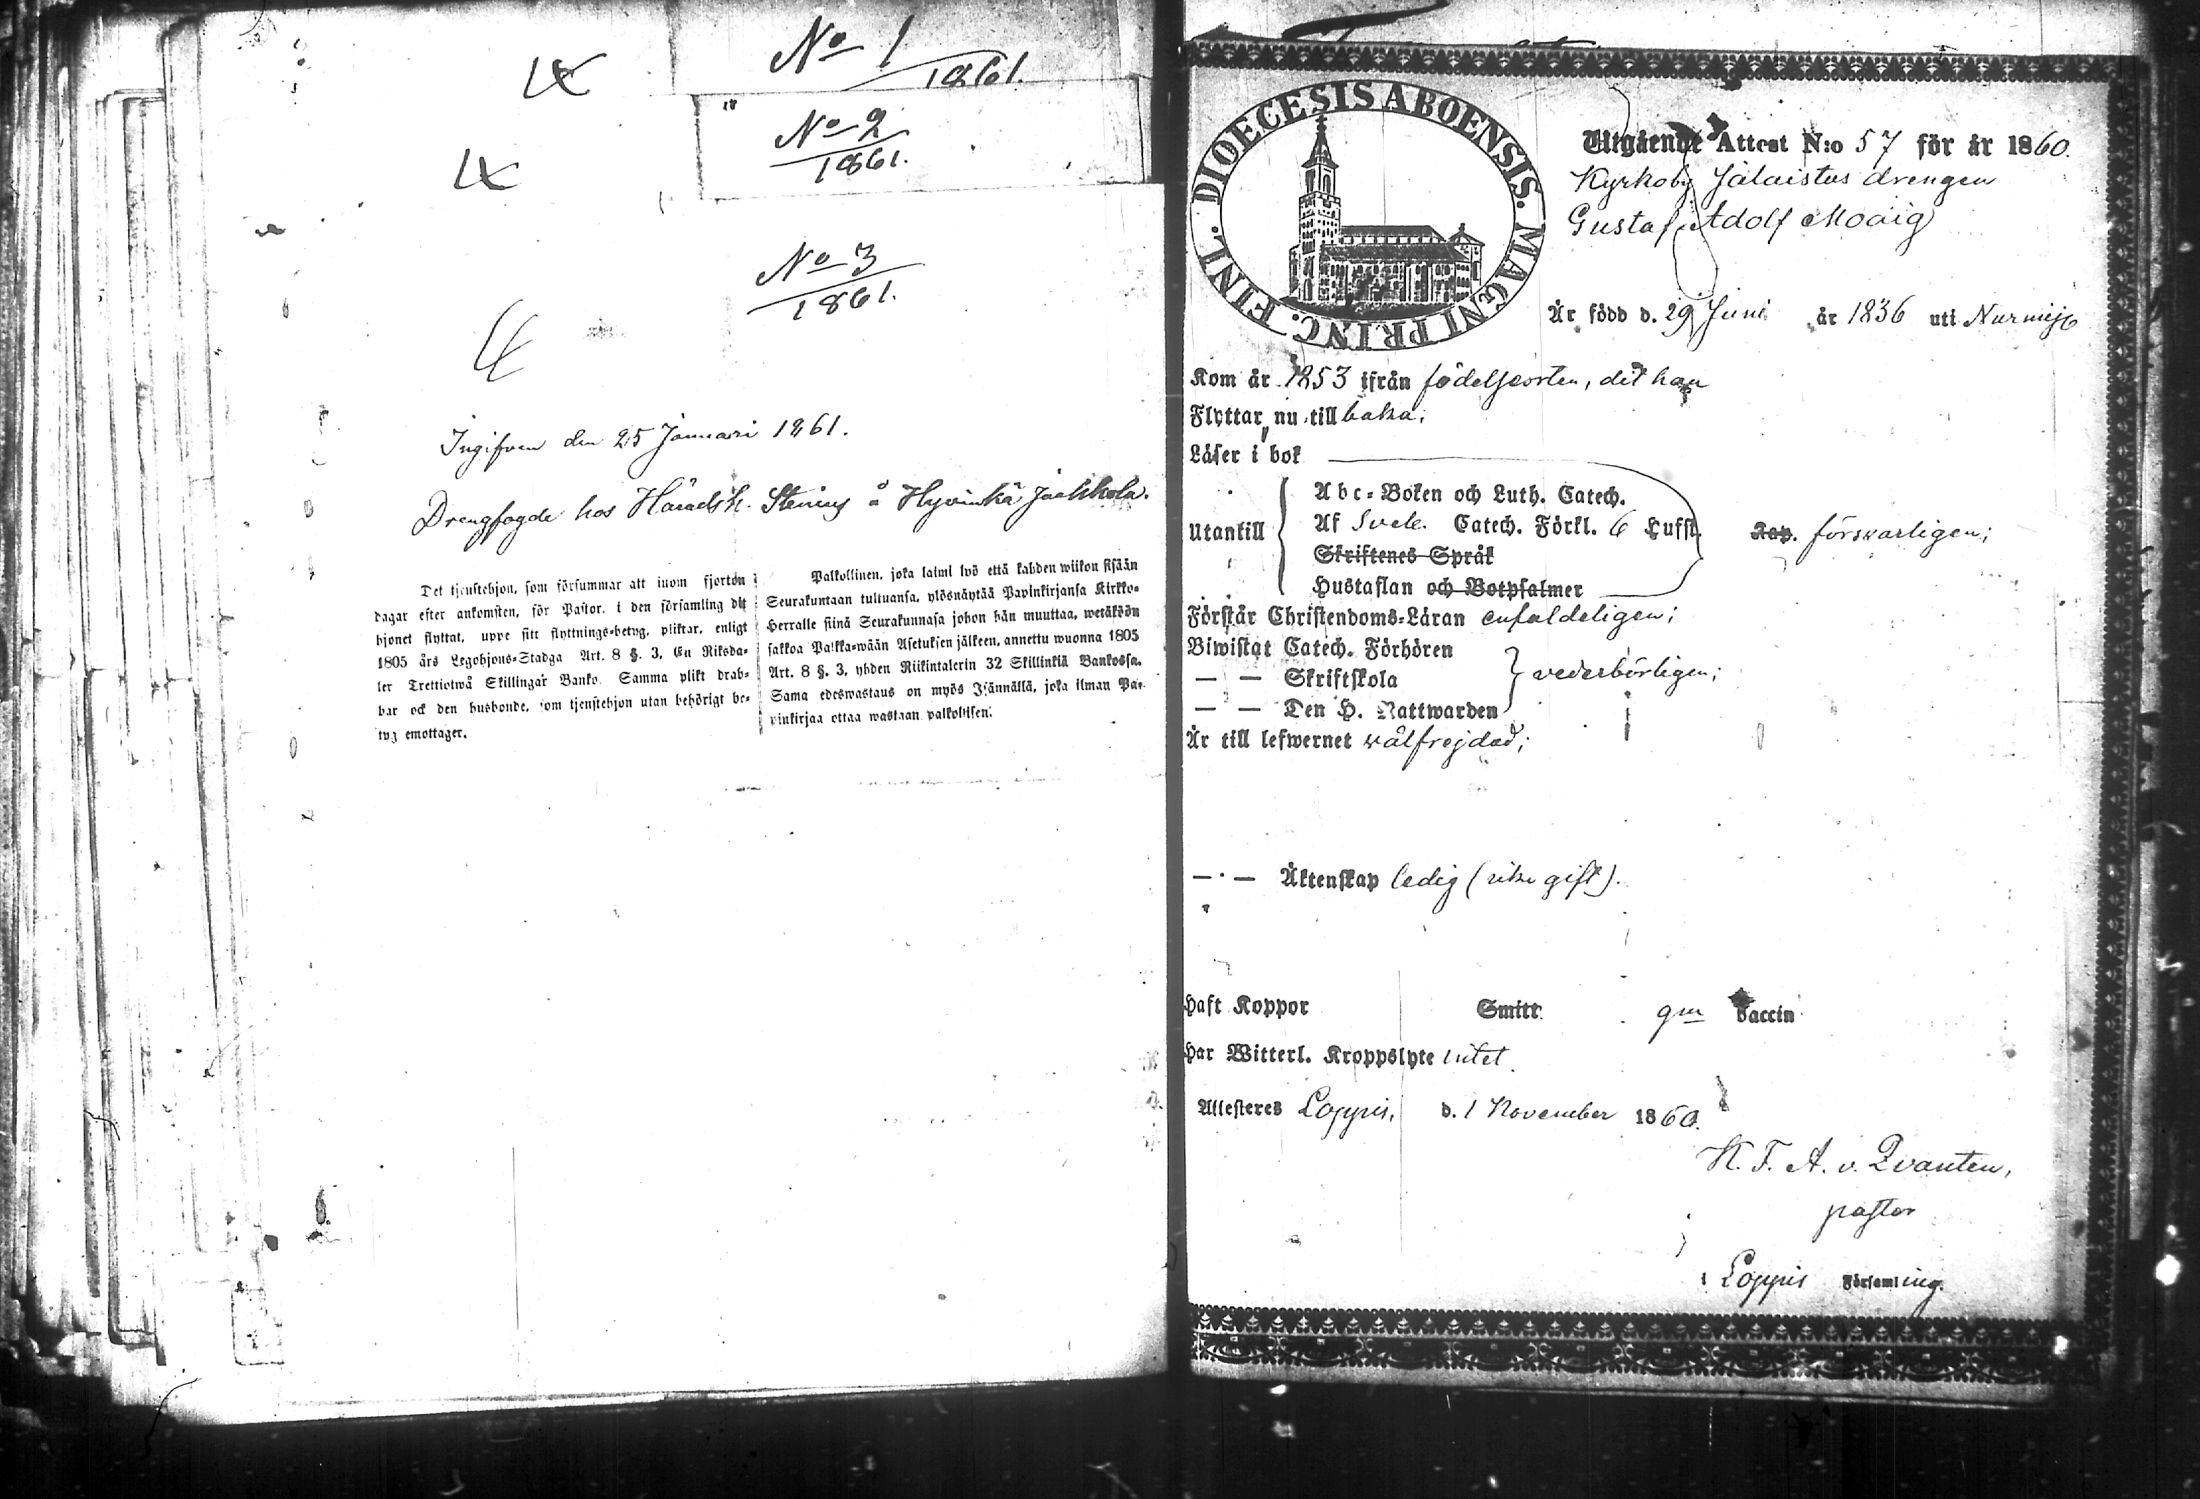 No 1
1861.
No 2
1861.
No 3
1861.
Ingifven den 25 Januari 1861.
Drengfogde hos Häradsh. Stenius å Hyvinkä Jackkola.
Det tjenstehjon, som försummar att inom fjorton
dagar efter ankomsten, för Pastor, i den församling dit
hjonet flyttat, uppe sitt flyttnings-betyg, pliktar, enligt
1805 års Legohjons-Stadga Art. 8 §. 3, En Riksda-
ler Trettiotwå Skillingar Banko. Samma plikt drab-
bar ock den husbonde, som tjenstehjon utan behörigt be-
tyg emottager.
Palkollinen, joka laimi lyö että kahden wiikon sisään
Seurakuntaan tultuansa, ylösnäytää Papinkirjansa Kirkko-
Herralle siinä Seurakunnasa johon hän muuttaa, wetäköön
sakkoa Palkka-wään Asetuksen jälkeen, annettu wuonna 1805
Art. 8 §. 3, yhden Riikintalerin 32 Skillinkiä Bankossa.
Sama edeswastaus on myös Isännällä, joka ilman Pa-
pinkirjaa ottaa wastaan palkollisen.
DIOECESIS ABOENSIS. MAGNI PRINC. FINL.
Utgående Attest N:o 57 för år 1860.
Kyrkoby Jälaistus drengen
Gustaf Adolf Moaig
Är född d. 29 Juni år 1836 uti Nurmijc
Kom år 1853 ifrån födelseorten, dit han
Flyttar nu till baka;
Läser i bok
Utantill
Abc-Boken och Luth. Catech.
Af Sveb. Catech. Förkl. 6 Hufst. Kap. försvarligen;
Skriftenes Språk
Hustaflan och Botpsalmer
Förstår Christendoms-Läran enfaldeligen;
Biwistat Catech. Förhören
— — Skriftskola vederbörligen;
— — Den H. Nattwarden
Är till lefwernet wälfrejdad;
— — Äktenskap ledig (icke gift).
Haft Koppor Smitt gm Vaccin
Har Witterl. Kroppslyte intet.
Attesteres Loppis, d. 1 November 1860.
K. F. A. v. Qvanten,
pastor
i Loppis Församling.